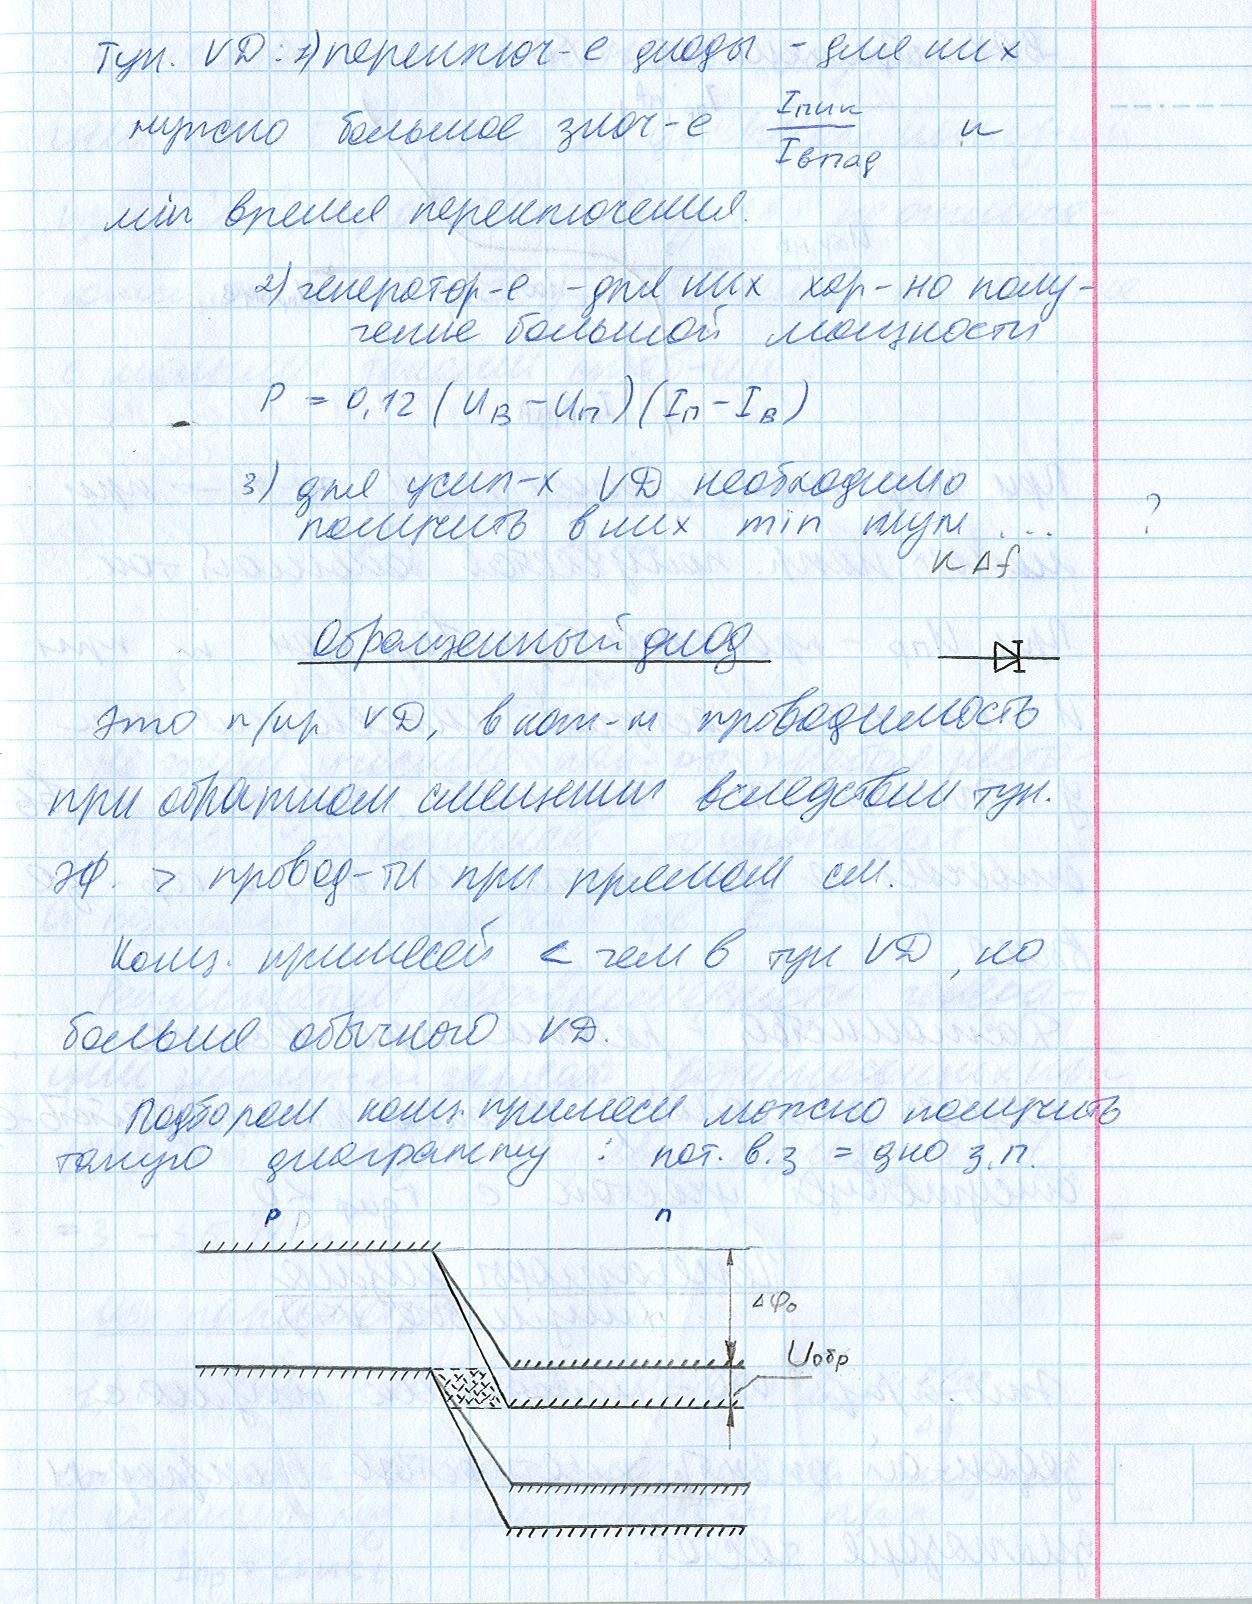 Тун. VD: 1) переключ-е диоды - для них
нужно большое знач-е Iпик / Iвпад и
min время переключения.
2) генератор-е - для них хар-но полу-
чение большой мощности
P = 0,12 (Uв - Uп) (Iп - Iв)
3) для усил-х VD необходимо
получить в них min шум ... ?
K Δf
Обращенный диод
Это п/пр VD, в кот-м проводимость
при обратном смещении вследствии тун.
эф. > провод-ти при прямом см.
Конц. примесей < чем в тун VD, но
больше обычного VD.
Подбором конц. примеси можно получить
такую диаграмму : пот. в.з = дно з.п.
p n
Δφ₀
Uобр